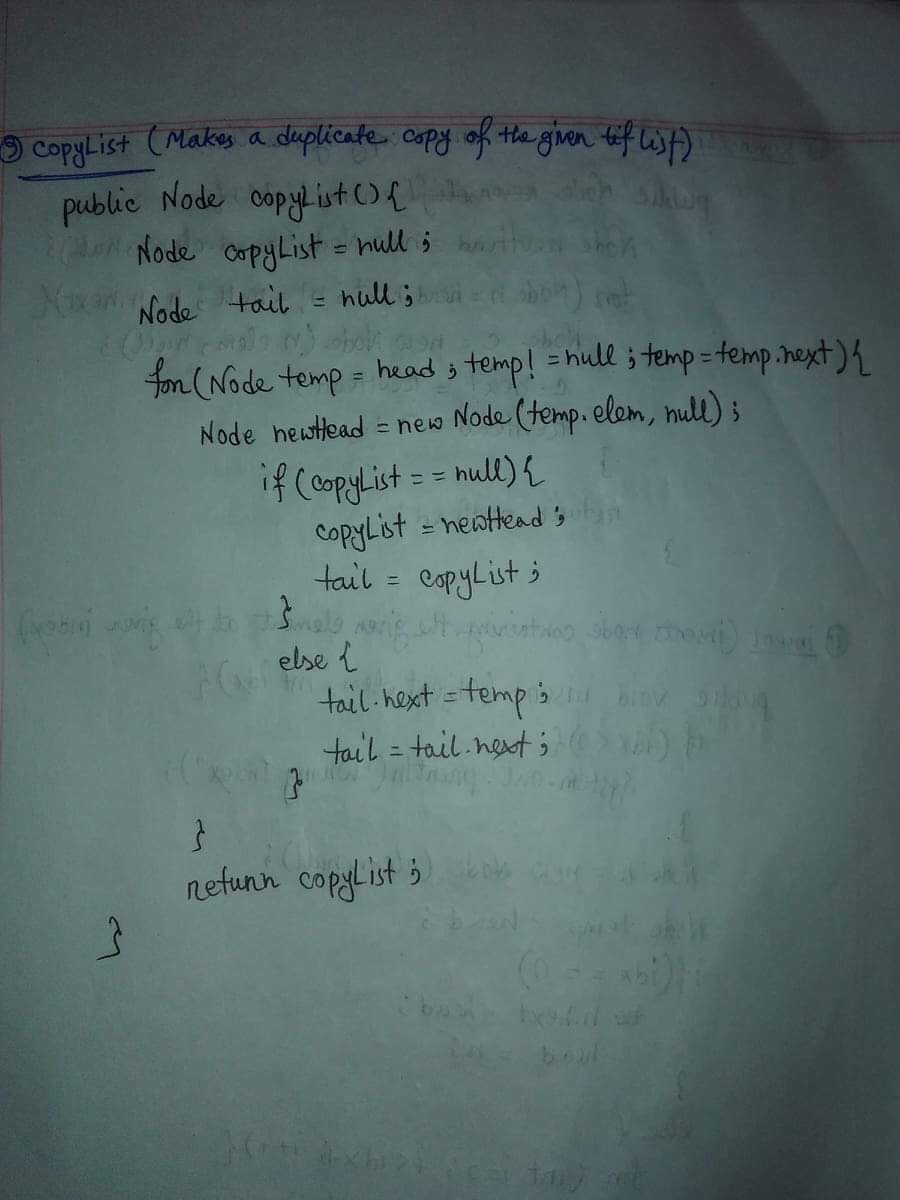 9) CopyList (Makes a duplicate copy of the given list)
public Node copyList() {
Node copyList = null ;
Node tail = null ;
for (Node temp = head ; temp! = null ; temp = temp.next) {
Node newHead = new Node (temp.elem, null) ;
if (copyList = = null) {
copyList = newHead ;
tail = copyList ;
}
else {
tail.next = temp ;
tail = tail.next ;
}
}
return copyList ;
}